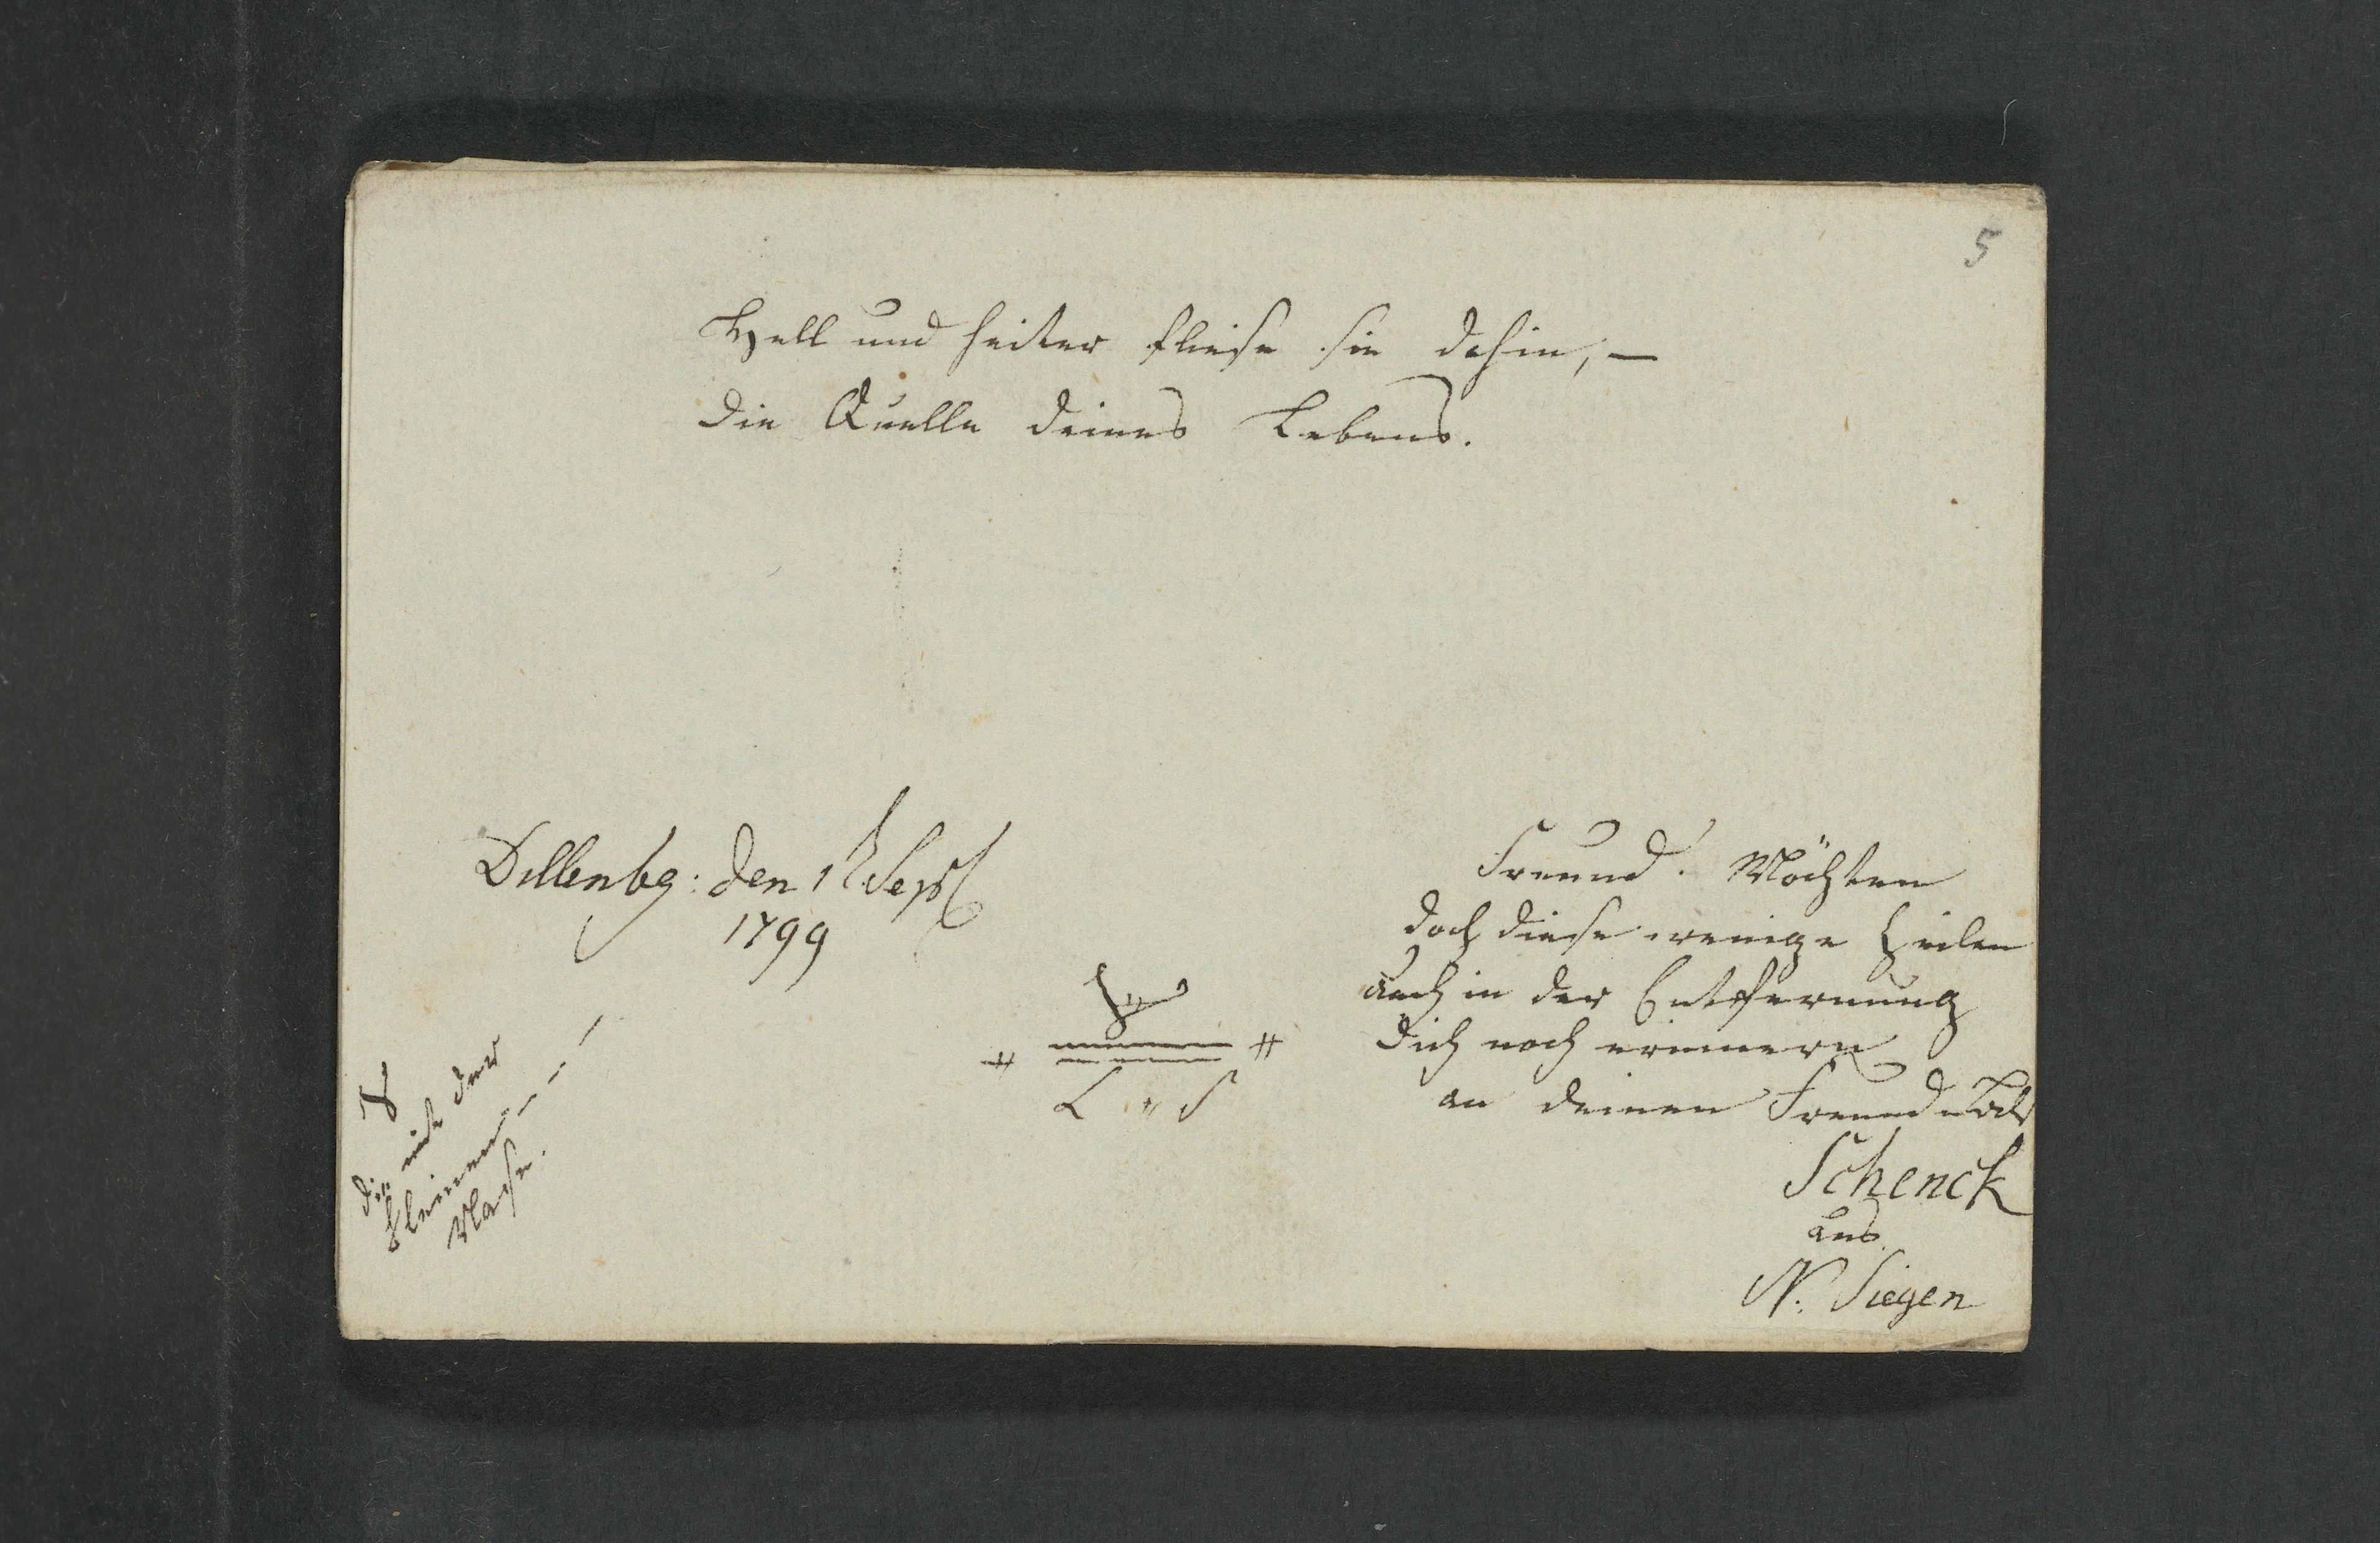 5
Hell und heiter fliese sie dahin, –
die Quelle deines Lebens.
Dillenbg: den 1 Sept
1799
Freund! Möchten
doch diese wenige Zeilen
auch in der Entfernung
dich noch erinnern
an deinen Freund
Schenck
aus
N. Siegen
L. S
die mit der
kleinen – – –
Nase.